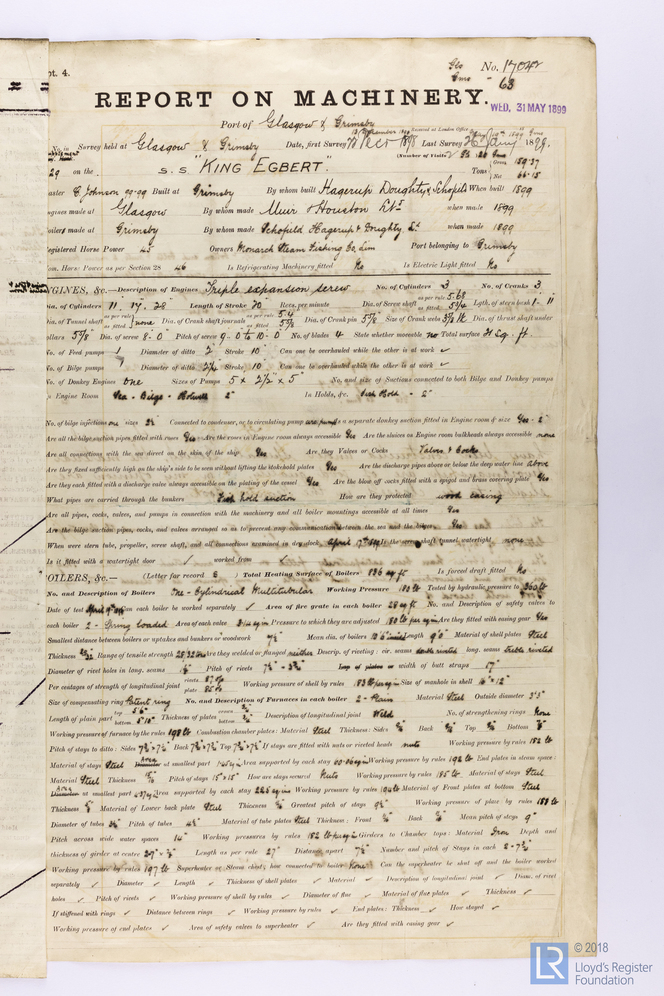 pt. 4.
Gls No. 17042
Gms " 63
REPORT ON MACHINERY.
WED. 31 MAY 1899
Port of Glasgow & Grimsby
Received at London Office
No. in Survey held at Glasgow & Grimsby Date, first Survey Last Survey 1899.
(Number of Visits
29 on the S.S "KING EGBERT" Tons Gross 159.37
Net 66.15
aster C. Johnson 99-99 Built at Grimsby By whom built Hagerup Doughty & Schofield When built 1899
ngines made at Glasgow By whom made Muir & Houston Ltd when made 1899
oilers made at Grimsby By whom made Schofield Hagerup & Doughty Ld when made 1899
egistered Horse Power 45 Owners Monarch Steam Fishing Co. Lim Port belonging to Grimsby
om. Horse Power as per Section 28 46 Is Refrigerating Machinery fitted No Is Electric Light fitted No
NGINES, &c.—Description of Engines Triple expansion screw No. of Cylinders 3 No. of Cranks 3
ia. of Cylinders 11. 17. 28" Length of Stroke 20" Revs. per minute Dia. of Screw shaft as per rule 5.60 as fitted 5 3/4 Lgth. of stern bush 1-11
ia. of Tunnel shaft as per rule as fitted none Dia. of Crank shaft journals as per rule 5.4 as fitted 5 5/8 Dia. of Crank pin 5 5/8 Size of Crank webs Dia. of thrust shaft under
ollars 5 5/8 Dia. of screw 8-0 Pitch of screw 9-0 to 10-0 No. of blades 4 State whether moveable no Total surface 21 Sq. ft
o. of Feed pumps 1 Diameter of ditto 2" Stroke 10" Can one be overhauled while the other is at work ✓
o. of Bilge pumps 1 Diameter of ditto Stroke 10" Can one be overhauled while the other is at work ✓
o. of Donkey Engines one Sizes of Pumps 5 x 2 1/2 x 5" No. and size of Suctions connected to both Bilge and Donkey pumps
n Engine Room Sea - Bilge - Hotwell 2" In Holds, &c. Fish Hold - 2"
No. of bilge injections one sizes Connected to condenser, or to circulating pump Is a separate donkey suction fitted in Engine room & size Yes - 2"
Are all the bilge suction pipes fitted with roses Yes Are the roses in Engine room always accessible Yes Are the sluices on Engine room bulkheads always accessible none
Are all connections with the sea direct on the skin of the ship Yes Are they Valves or Cocks Valves & Cocks
Are they fixed sufficiently high on the ship's side to be seen without lifting the stokehold plates Yes Are the discharge pipes above or below the deep water line above
Are they each fitted with a discharge valve always accessible on the plating of the vessel Yes Are the blow off cocks fitted with a spigot and brass covering plate Yes
What pipes are carried through the bunkers Fish hold suction How are they protected wood casing
Are all pipes, cocks, valves, and pumps in connection with the machinery and all boiler mountings accessible at all times Yes
Are the bilge suction pipes, cocks, and valves arranged so as to prevent any communication between the sea and the bilges Yes
When were stern tube, propeller, screw shaft, and all connections examined in dry dock Is the screw shaft tunnel watertight none
Is it fitted with a watertight door ✓ worked from ✓
OILERS, &c.— (Letter for record S) Total Heating Surface of Boilers 836 sq ft Is forced draft fitted No
No. and Description of Boilers One - Cylindrical Multitubular Working Pressure 180 lb Tested by hydraulic pressure to 360 lb
Date of test No. of Can each boiler be worked separately ✓ Area of fire grate in each boiler 28 sq ft No. and Description of safety valves to
each boiler 2 - Spring loaded Area of each valve Pressure to which they are adjusted Are they fitted with easing gear Yes
Smallest distance between boilers or uptakes and bunkers or woodwork 7 1/2" Mean dia. of boilers Length 9'0" Material of shell plates Steel
Thickness Range of tensile strength 28/32 tons Are they welded or flanged neither Descrip. of riveting: cir. seams double riveted long. seams treble riveted
Diameter of rivet holes in long. seams Pitch of rivets Lap of plates or width of butt straps 17"
Per centages of strength of longitudinal joint rivets plate Working pressure of shell by rules Size of manhole in shell 16" x 12"
Size of compensating ring Patent ring No. and Description of Furnaces in each boiler 2 - Plain Material Steel Outside diameter 3'3"
Length of plain part top bottom Thickness of plates crown bottom Description of longitudinal joint Weld No. of strengthening rings None
Working pressure of furnace by the rules 198 lb Combustion chamber plates: Material Steel Thickness: Sides Back Top Bottom
Pitch of stays to ditto: Sides Back Top If stays are fitted with nuts or riveted heads nuts Working pressure by rules 182 lb
Material of stays Steel at smallest part Area supported by each stay Working pressure by rules 192 lb End plates in steam space
Material Steel Thickness Pitch of stays 15" x 15" How are stays secured Nuts Working pressure by rules 185 lb Material of stays Steel
at smallest part Area supported by each stay Working pressure by rules Material of Front plates at bottom Steel
Thickness Material of Lower back plate Steel Thickness Greatest pitch of stays Working pressure of plate by rules
Diameter of tubes Pitch of tubes Material of tube plates Steel Thickness: Front Back Mean pitch of stays 9"
Pitch across wide water spaces 14" Working pressures by rules 182 lb Girders to Chamber tops: Material Iron Depth and
thickness of girder at centre Length as per rule 27" Distance apart Number and pitch of Stays in each
Working pressure by rules 197 lb Superheater or Steam chest; how connected to boiler None Can the superheater be shut off and the boiler worked
separately ✓ Diameter ✓ Length ✓ Thickness of shell plates ✓ Material ✓ Description of longitudinal joint ✓ Diam. of rivet
holes ✓ Pitch of rivets ✓ Working pressure of shell by rules ✓ Diameter of flue ✓ Material of flue plates ✓ Thickness ✓
If stiffened with rings ✓ Distance between rings ✓ Working pressure by rules ✓ End plates: Thickness ✓ How stayed ✓
Working pressure of end plates ✓ Area of safety valves to superheater ✓ Are they fitted with easing gear ✓
LR
© 2018
Lloyd's Register
Foundation